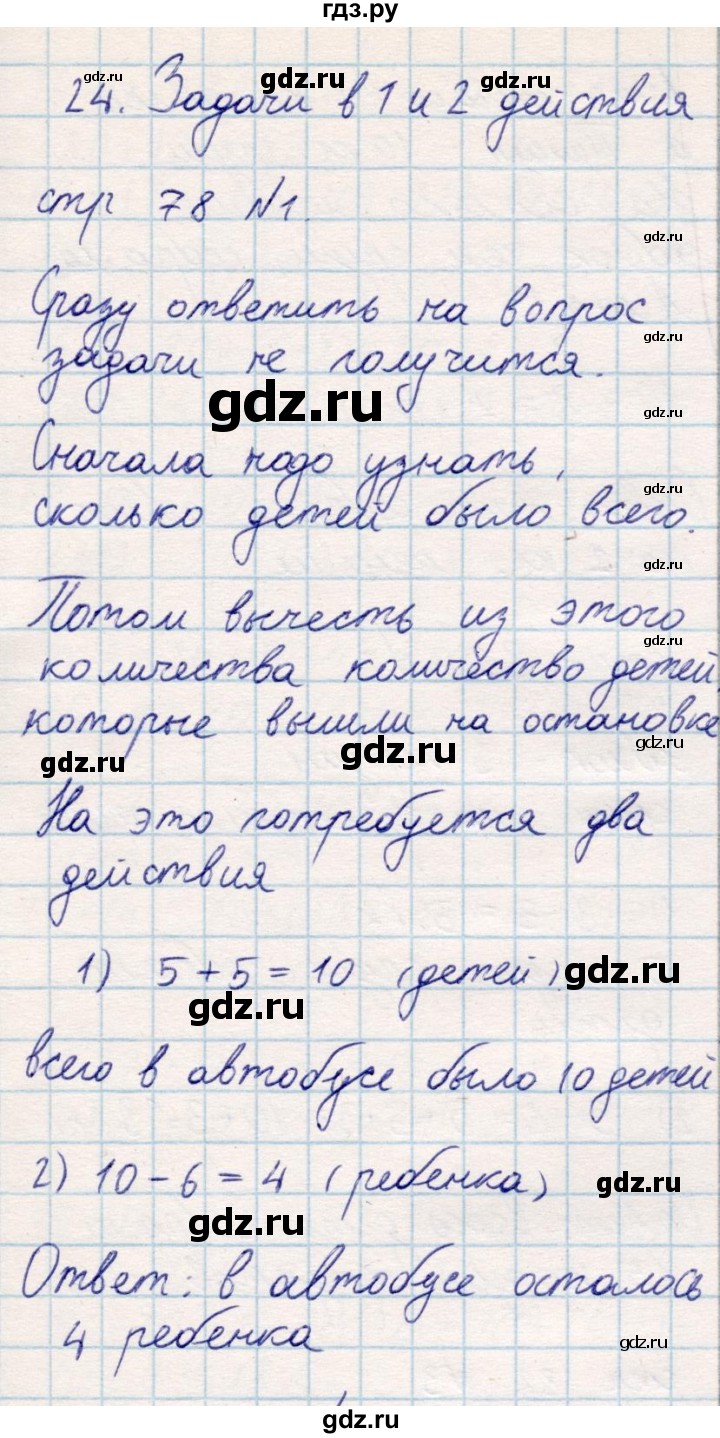 гдз.ру
gdz.ru
gdz.ru
gdz.ru
24. Задачи в 1 и 2 действия
стр 78 №1.
gdz.ru
Сразу ответить на вопрос
gdz.ru
задачи не получится.
gdz.ru
gdz.ru
Сначала надо узнать,
gdz.ru
сколько детей было всего.
gdz.ru
Потом вычесть из этого
gdz.ru
количества количество детей,
которые вышли на остановке
gdz.ru
gdz.ru
gdz.ru
На это потребуется два
действия
1) 5+5=10 (детей)
gdz.ru
gdz.ru
всего в автобусе было 10 детей
2) 10-6=4 (ребенка)
gdz.ru
gdz.ru
Ответ: в автобусе осталось
4 ребенка
gdz.ru
gdz.ru